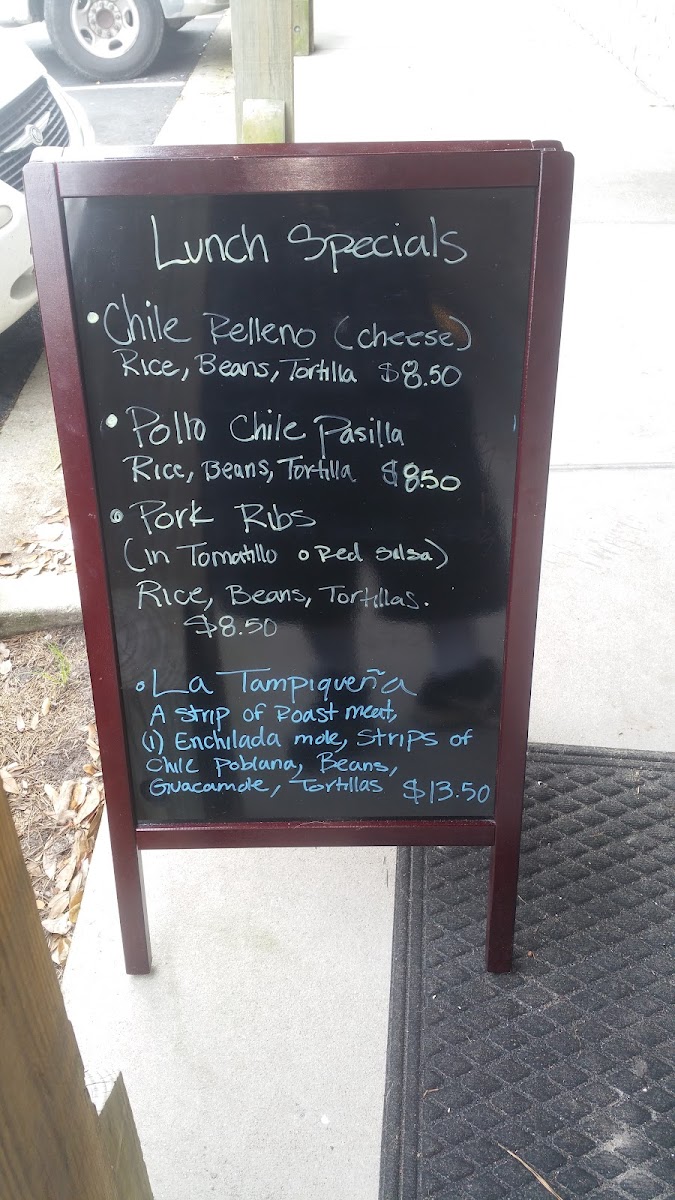 Lunch Specials
• Chile Relleno (cheese)
Rice, Beans, Tortilla $8.50
• Pollo Chile Pasilla
Rice, Beans, Tortilla $8.50
• Pork Ribs
(in Tomatillo o Red Salsa)
Rice, Beans, Tortillas.
$8.50
• La Tampiqueña
A strip of Roast meat,
(1) Enchilada mole, Strips of
Chile Poblana, Beans,
Guacamole, Tortillas $13.50